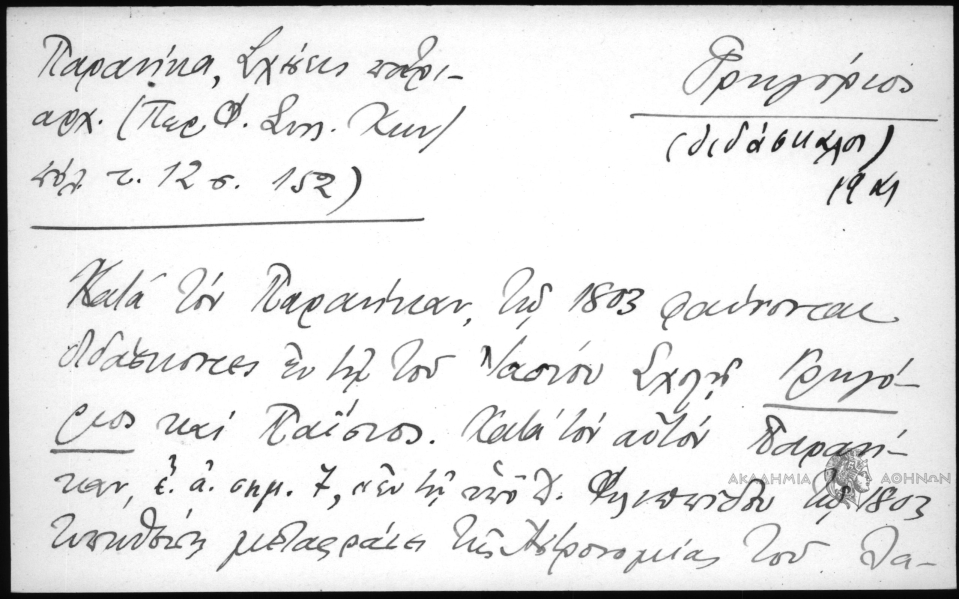 Παρανίκα, Σχέσεις πατρι-
αρχ. (Περ Φ. Συλ. Κων/
πόλ τ. 12 σ. 152)
Γρηγόριος
(διδάσκαλος)
19 αι
Κατά τόν Παρανίκαν, τῷ 1803 φαίνονται
διδάσκοντες ἐν τῇ τοῦ Ἰασίου Σχολῇ Γρηγό-
ριος καί Παΐσιος. Κατά τόν αὐτόν Παρανί-
καν, ἐ. ἀ. σημ. 7, ἐν τῇ ὑπό Δ. Φιλιππίδου τῷ 1803
τυπωθείσῃ μεταφράσει τῆς Ἀστρονομίας τοῦ Λα-
ΑΚΑΔΗΜΙΑ ΑΘΗΝΩΝ